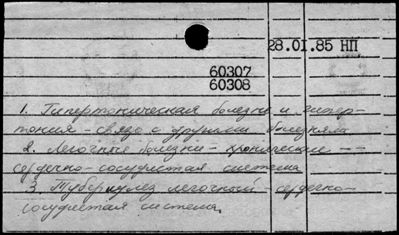 28.01.85 НП
60307
60308
1. Гипертоническая болезнь и гипер-
тония - связь с другими болезнями
2. Легочные болезни - хронические --
сердечно-сосудистая система
3. Туберкулез легочный - сердечно-
сосудистая система